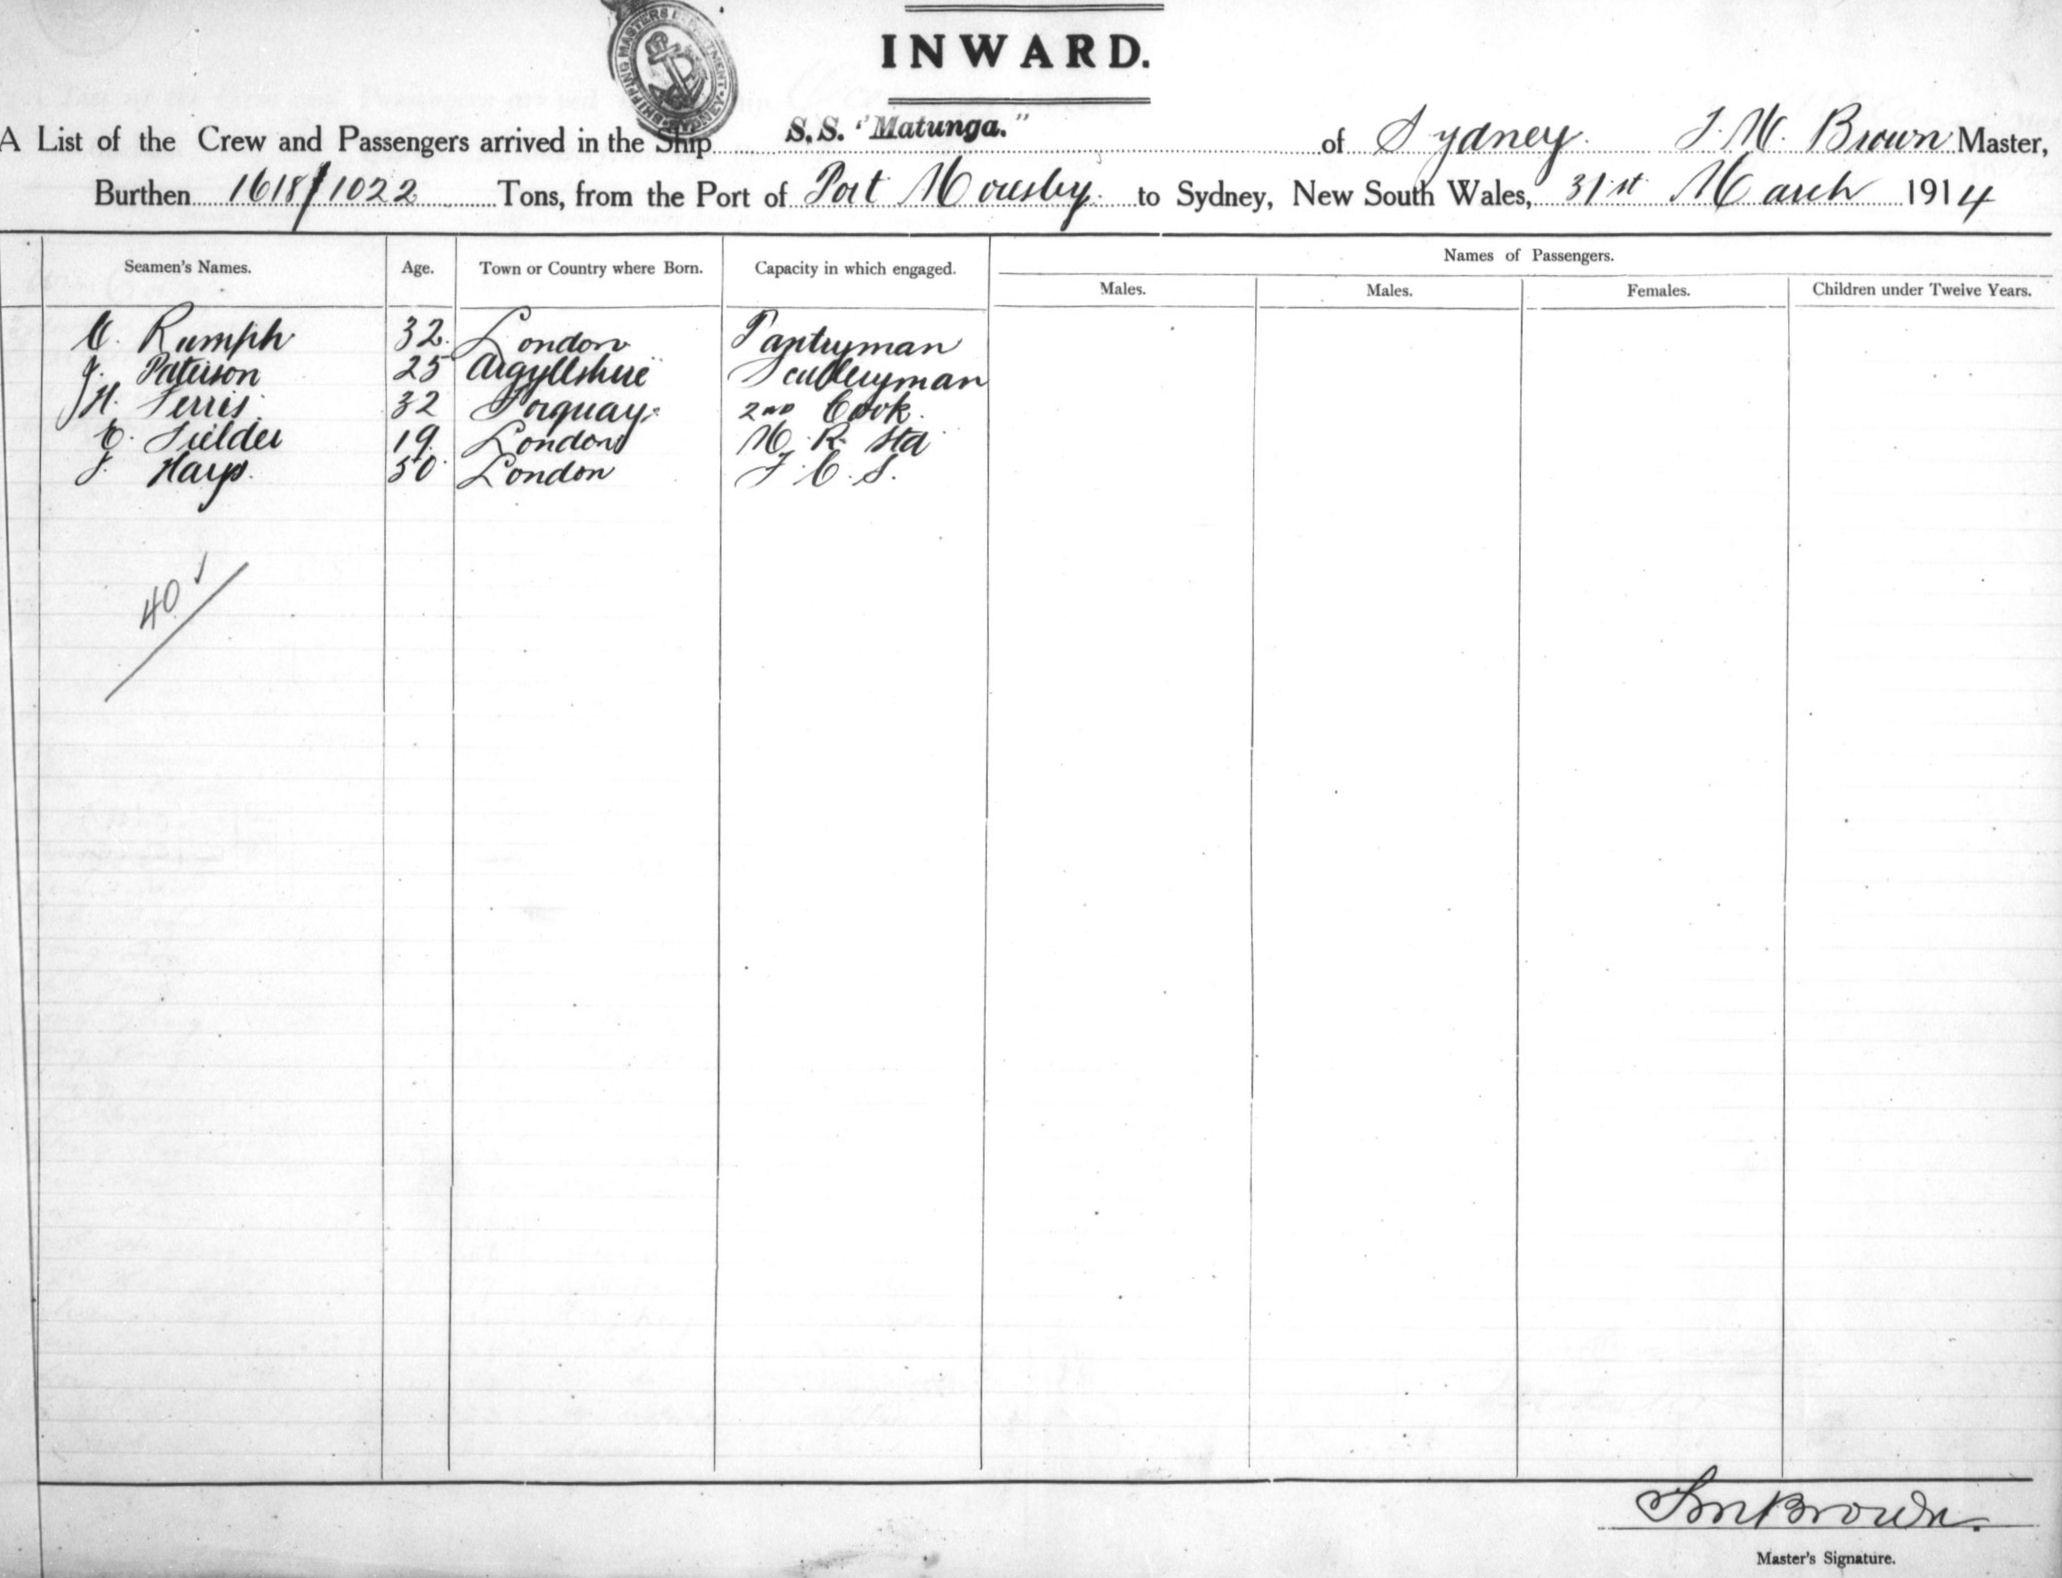 INWARD.
A List of the Crew and Passengers arrived in the Ship S.S. "Matunga." of Sydney. Brown Master,
Burthen 1618/1022 Tons, from the Port of Port Moresby. to Sydney, New South Wales, 31st March 1914
Seamen's Names. Age. Town or Country where Born. Capacity in which engaged. Names of Passengers.
Males. Males. Females. Children under Twelve Years.
C. Rumph 32 London Pantryman
J. Paterson 25 Argyllshire Sculleryman
J H. Ferris 32 Torquay 2ND Cook.
Fielder 19 London M. R. Std
Hays. 50 London F. C. S.
40 ✓
Brown.
Master's Signature.